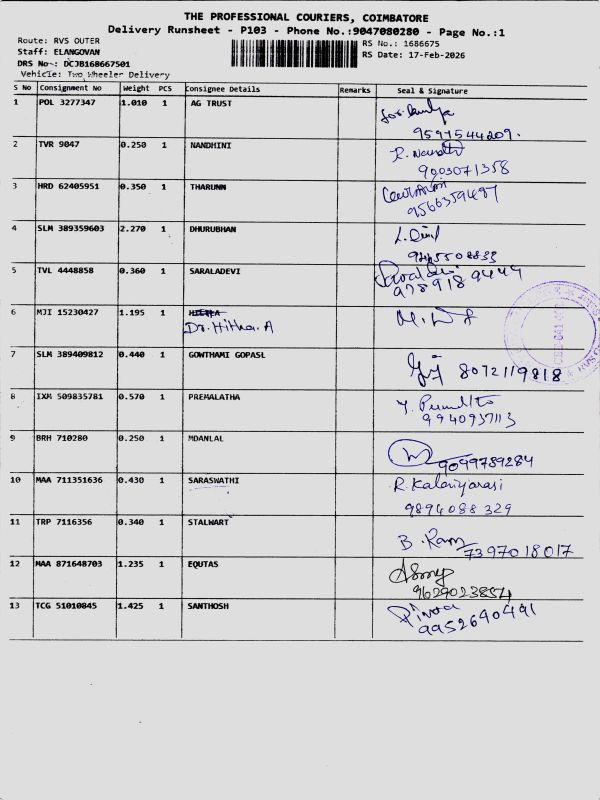 THE PROFESSIONAL COURIERS, COIMBATORE
Delivery Runsheet - P103 - Phone No.:9047080280 - Page No.:1
Route: RVS OUTER
Staff: ELANGOVAN
DRS No-: DCJB168667501
Vehicle: Two Wheeler Delivery
RS No.: 1686675
RS Date: 17-Feb-2026
S No Consignment No Weight PCS Consignee Details Remarks Seal & Signature
1 POL 3277347 1.010 1 AG TRUST
9597544209.
2 TVR 9047 0.250 1 NANDHINI
9003071358
3 HRD 62405951 0.350 1 THARUNN
9566359487
4 SLM 389359603 2.270 1 DHURUBHAN
5 TVL 4448858 0.360 1 SARALADEVI
9789189444
6 MJI 15230427 1.195 1
Dr. Hitha. A
7 SLM 389409812 0.440 1 GOWTHAMI GOPASL
8072119818
8 IXM 509835781 0.570 1 PREMALATHA
9940937113
9 BRH 710280 0.250 1 MDANLAL
9099789284
10 MAA 711351636 0.430 1 SARASWATHI
R. Kalaiyarasi
9894088329
11 TRP 7116356 0.340 1 STALWART
B. Ram
7397018017
12 MAA 871648703 1.235 1 EQUTAS
9629023854
13 TCG 51010845 1.425 1 SANTHOSH
9952640491